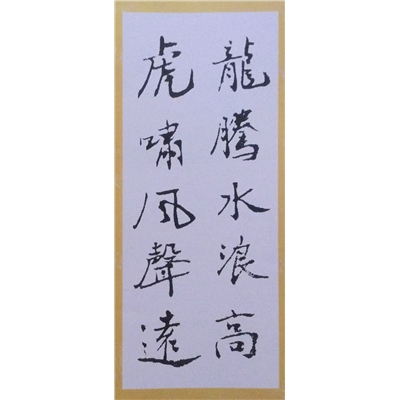 龍騰水浪高
虎嘯風聲遠